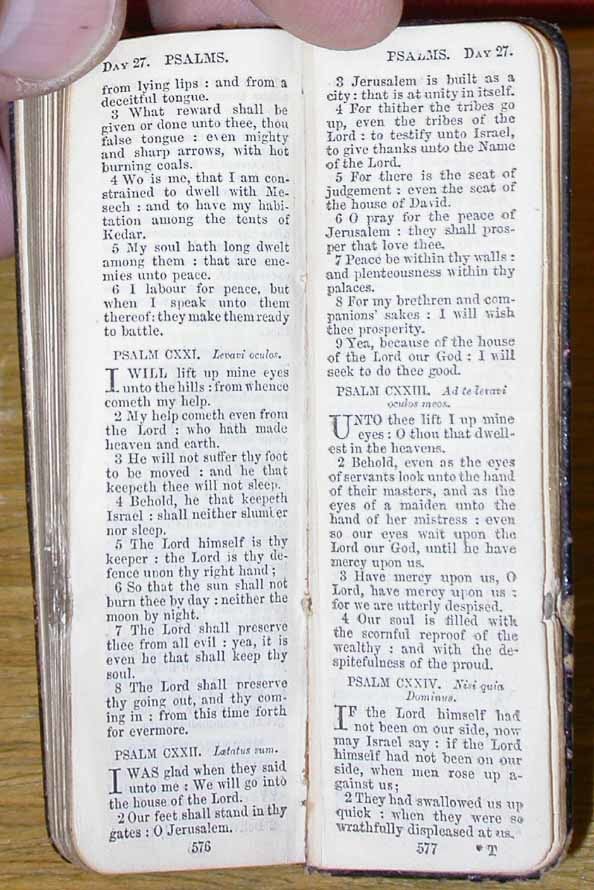 DAY 27. PSALMS.
from lying lips : and from a
deceitful tongue.
3 What reward shall be
given or done unto thee, thou
false tongue : even mighty
and sharp arrows, with hot
burning coals.
4 Wo is me, that I am con-
strained to dwell with Me-
sech : and to have my habi-
tation among the tents of
Kedar.
5 My soul hath long dwelt
among them : that are ene-
mies unto peace.
6 I labour for peace, but
when I speak unto them
thereof : they make them ready
to battle.
PSALM CXXI. Levavi oculos.
I WILL lift up mine eyes
unto the hills : from whence
cometh my help.
2 My help cometh even from
the Lord : who hath made
heaven and earth.
3 He will not suffer thy foot
to be moved : and he that
keepeth thee will not sleep.
4 Behold, he that keepeth
Israel : shall neither slumber
nor sleep.
5 The Lord himself is thy
keeper : the Lord is thy de-
fence upon thy right hand ;
6 So that the sun shall not
burn thee by day : neither the
moon by night.
7 The Lord shall preserve
thee from all evil : yea, it is
even he that shall keep thy
soul.
8 The Lord shall preserve
thy going out, and thy com-
ing in : from this time forth
for evermore.
PSALM CXXII. Lætatus sum.
I WAS glad when they said
unto me : We will go into
the house of the Lord.
2 Our feet shall stand in thy
gates : O Jerusalem.
576
PSALMS. DAY 27.
3 Jerusalem is built as a
city : that is at unity in itself.
4 For thither the tribes go
up, even the tribes of the
Lord : to testify unto Israel,
to give thanks unto the Name
of the Lord.
5 For there is the seat of
judgement : even the seat of
the house of David.
6 O pray for the peace of
Jerusalem : they shall pros-
per that love thee.
7 Peace be within thy walls :
and plenteousness within thy
palaces.
8 For my brethren and com-
panions' sakes : I will wish
thee prosperity.
9 Yea, because of the house
of the Lord our God : I will
seek to do thee good.
PSALM CXXIII. Ad te levavi
oculos meos.
UNTO thee lift I up mine
eyes : O thou that dwell-
est in the heavens.
2 Behold, even as the eyes
of servants look unto the hand
of their masters, and as the
eyes of a maiden unto the
hand of her mistress : even
so our eyes wait upon the
Lord our God, until he have
mercy upon us.
3 Have mercy upon us, O
Lord, have mercy upon us :
for we are utterly despised.
4 Our soul is filled with
the scornful reproof of the
wealthy : and with the de-
spitefulness of the proud.
PSALM CXXIV. Nisi quia
Dominus.
IF the Lord himself had
not been on our side, now
may Israel say : if the Lord
himself had not been on our
side, when men rose up a-
gainst us ;
2 They had swallowed us up
quick : when they were so
wrathfully displeased at us.
577 T